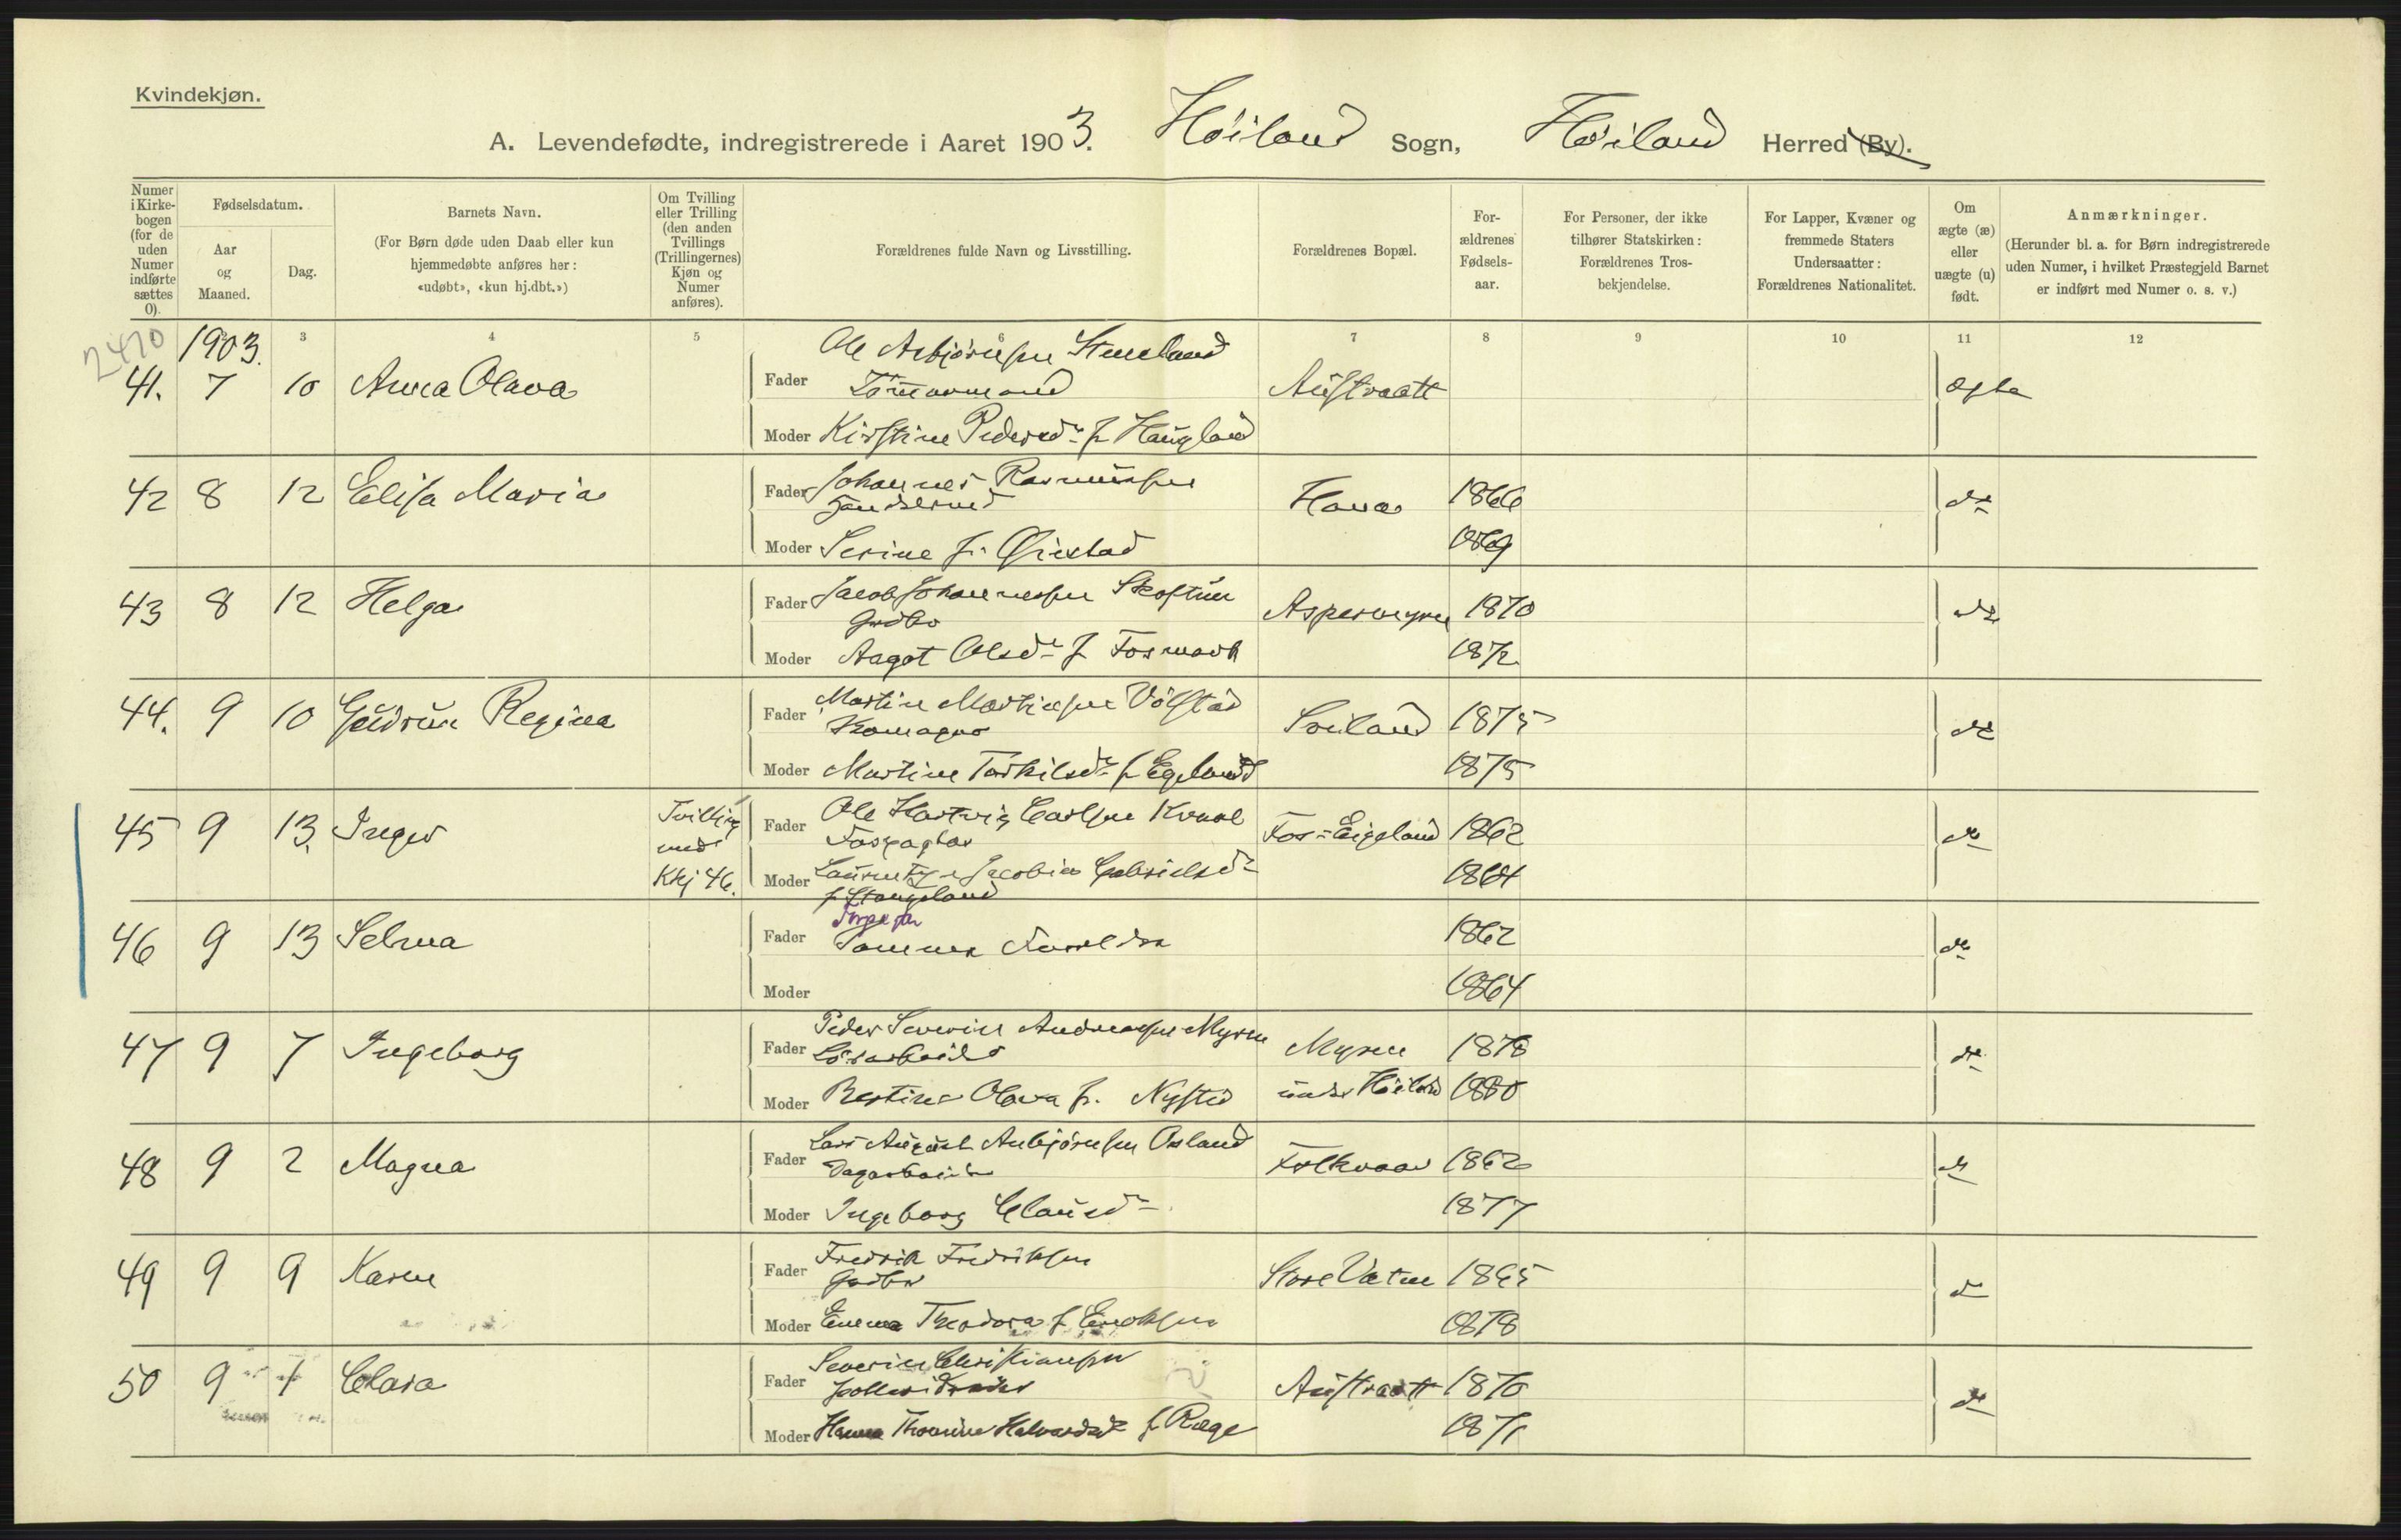 Kvindekjøn.
A. Levendefødte, indregistrerede i Aaret 1903. Høiland Sogn, Høiland Herred (By).
Numer i Kirkebogen (for de uden Numer indførte sættes 0).
Fødselsdatum.
Aar og Maaned.
Dag.
Barnets Navn.
(For Børn døde uden Daab eller kun hjemmedøbte anføres her: «udøbt», «kun hj.dbt.»)
Om Tvilling eller Trilling (den anden Tvillings (Trillingernes) Kjøn og Numer anføres).
Forældrenes fulde Navn og Livsstilling.
Forældrenes Bopæl.
Forældrenes Fødselsaar.
For Personer, der ikke tilhører Statskirken: Forældrenes Trosbekjendelse.
For Lapper, Kvæner og fremmede Staters Undersaatter: Forældrenes Nationalitet.
Om ægte (æ) eller uægte (u) født.
Anmærkninger.
(Herunder bl. a. for Børn indregistrerede uden Numer, i hvilket Præstegjeld Barnet er indført med Numer o. s. v.)
2470 1903. 3 4 5 6 7 8 9 10 11 12
41. 7 10 Anna Olava Fader Ole Asbjørnsen Steneland Austraatt ægte
Tømmermand
Moder Kirstine Pedersdr f Haugland
42 8 12 Elisa Maria Fader Johannes Rasmussen Hana 1866 do
Moder Serine f. 1869
43 8 12 Helga Fader Jacob Johannessen Skeftun 1870 do
Grdbr
Moder Aagot Olsdr f Fosmark 1872
44. 9 10 Gudrun Regina Fader Martin Martinsen Vølstad Soiland 1875 do
Moder Martine Torkilsdr f Egeland 1875
45 9 13. Inger Tvilling med Kkj 46. Fader Ole Hartvig Carlsen Kvaal Fos-Eigeland 1862 do
Moder Jacobine Gabrielsdr 1864
f Stangeland
46 9 13 Selma Fader Samme Forældre 1862 do
Moder 1864
47 9 7 Ingeborg Fader Peder Severin Andreassen Myren Myren 1878 do
Løsarbeider
Moder Bertine Olava f. Nysted under Høiland 1880
48 9 2 Magna Fader Lars August Anbjørnsen Osland Folkvord 1862 do
Dagarbeider
Moder Ingeborg Clausdr 1877
49 9 9 Karen Fader Fredrik Fredriksen Store Vatne 1865 do
Grdbr
Moder Emma Theodora f Enoksen 1878
50 9 1 Clara Fader Severin Christiansen Austraatt 1870 do
Moder Hanna Thomine Halvardsdr f Rege 1871